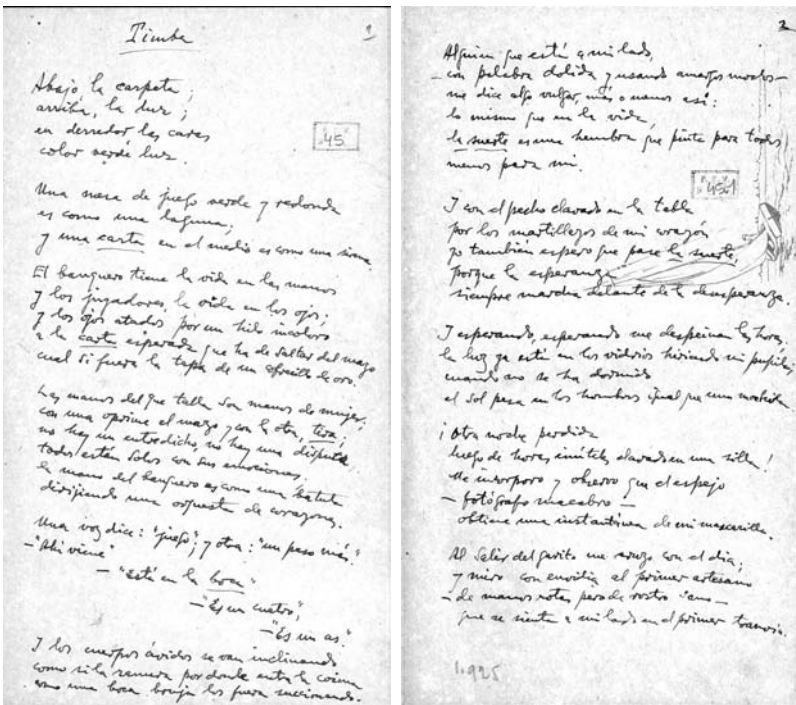 Timba
1
Abajo, la carpeta;
arriba, la luz;
en derredor las caras
color verde luz.
45
Una mesa de juego verde y redonda
es como una laguna,
y una carta en el medio es como una sirena.
El banquero tiene la vida en las manos
y los jugadores, la vida en los ojos;
y los ojos atados por un hilo incoloro
a la carta esperada que ha de saltar del mazo
cual si fuera la tapa de un cofrecillo de oro.
Las manos del que talla son manos de mujer;
con una oprime el mazo y con la otra, tira;
no hay un entredicho, no hay una disputa,
todos están solos con sus emociones.
la mano del banquero es como una batuta
dirigiendo una orquesta de corazones.
Una voz dice: "juego"; y otra: "un peso más."
—"Ahí viene"
—"está en la boca"
—"Es un cuatro",
—"Es un as."
I los cuerpos ávidos se van inclinando
como si la ranura por donde entra la coima
como una boca bruja los fuera succionando.
2
Alguien que está a mi lado,
—con palabra dolida y usando amargos modos—
me dice algo vulgar, más o menos así:
lo mismo que en la vida,
la suerte es una hembra que pinta para todos
menos para mí.
45
I con el pecho clavado en la tabla
por los martillazos de mi corazón
yo también espero que pase la suerte,
porque la esperanza
siempre marcha delante de la desesperanza.
I esperando, esperando me despeinan las horas,
la luz ya está en los vidrios hiriendo mi pupila,
cuando no se ha dormido
el sol pesa en los hombros igual que una mochila.
¡Otra noche perdida
luego de horas inútiles clavado en una silla!
Me incorporo y observo que el espejo
—fotógrafo macabro—
obtiene una instantánea de mi mascarilla.
Al salir del garito me cruzo con el día;
y miro con envidia al primer artesano
—de manos rotas pero de rostro sano—
que se sienta a mi lado en el primer tranvía.
1.925